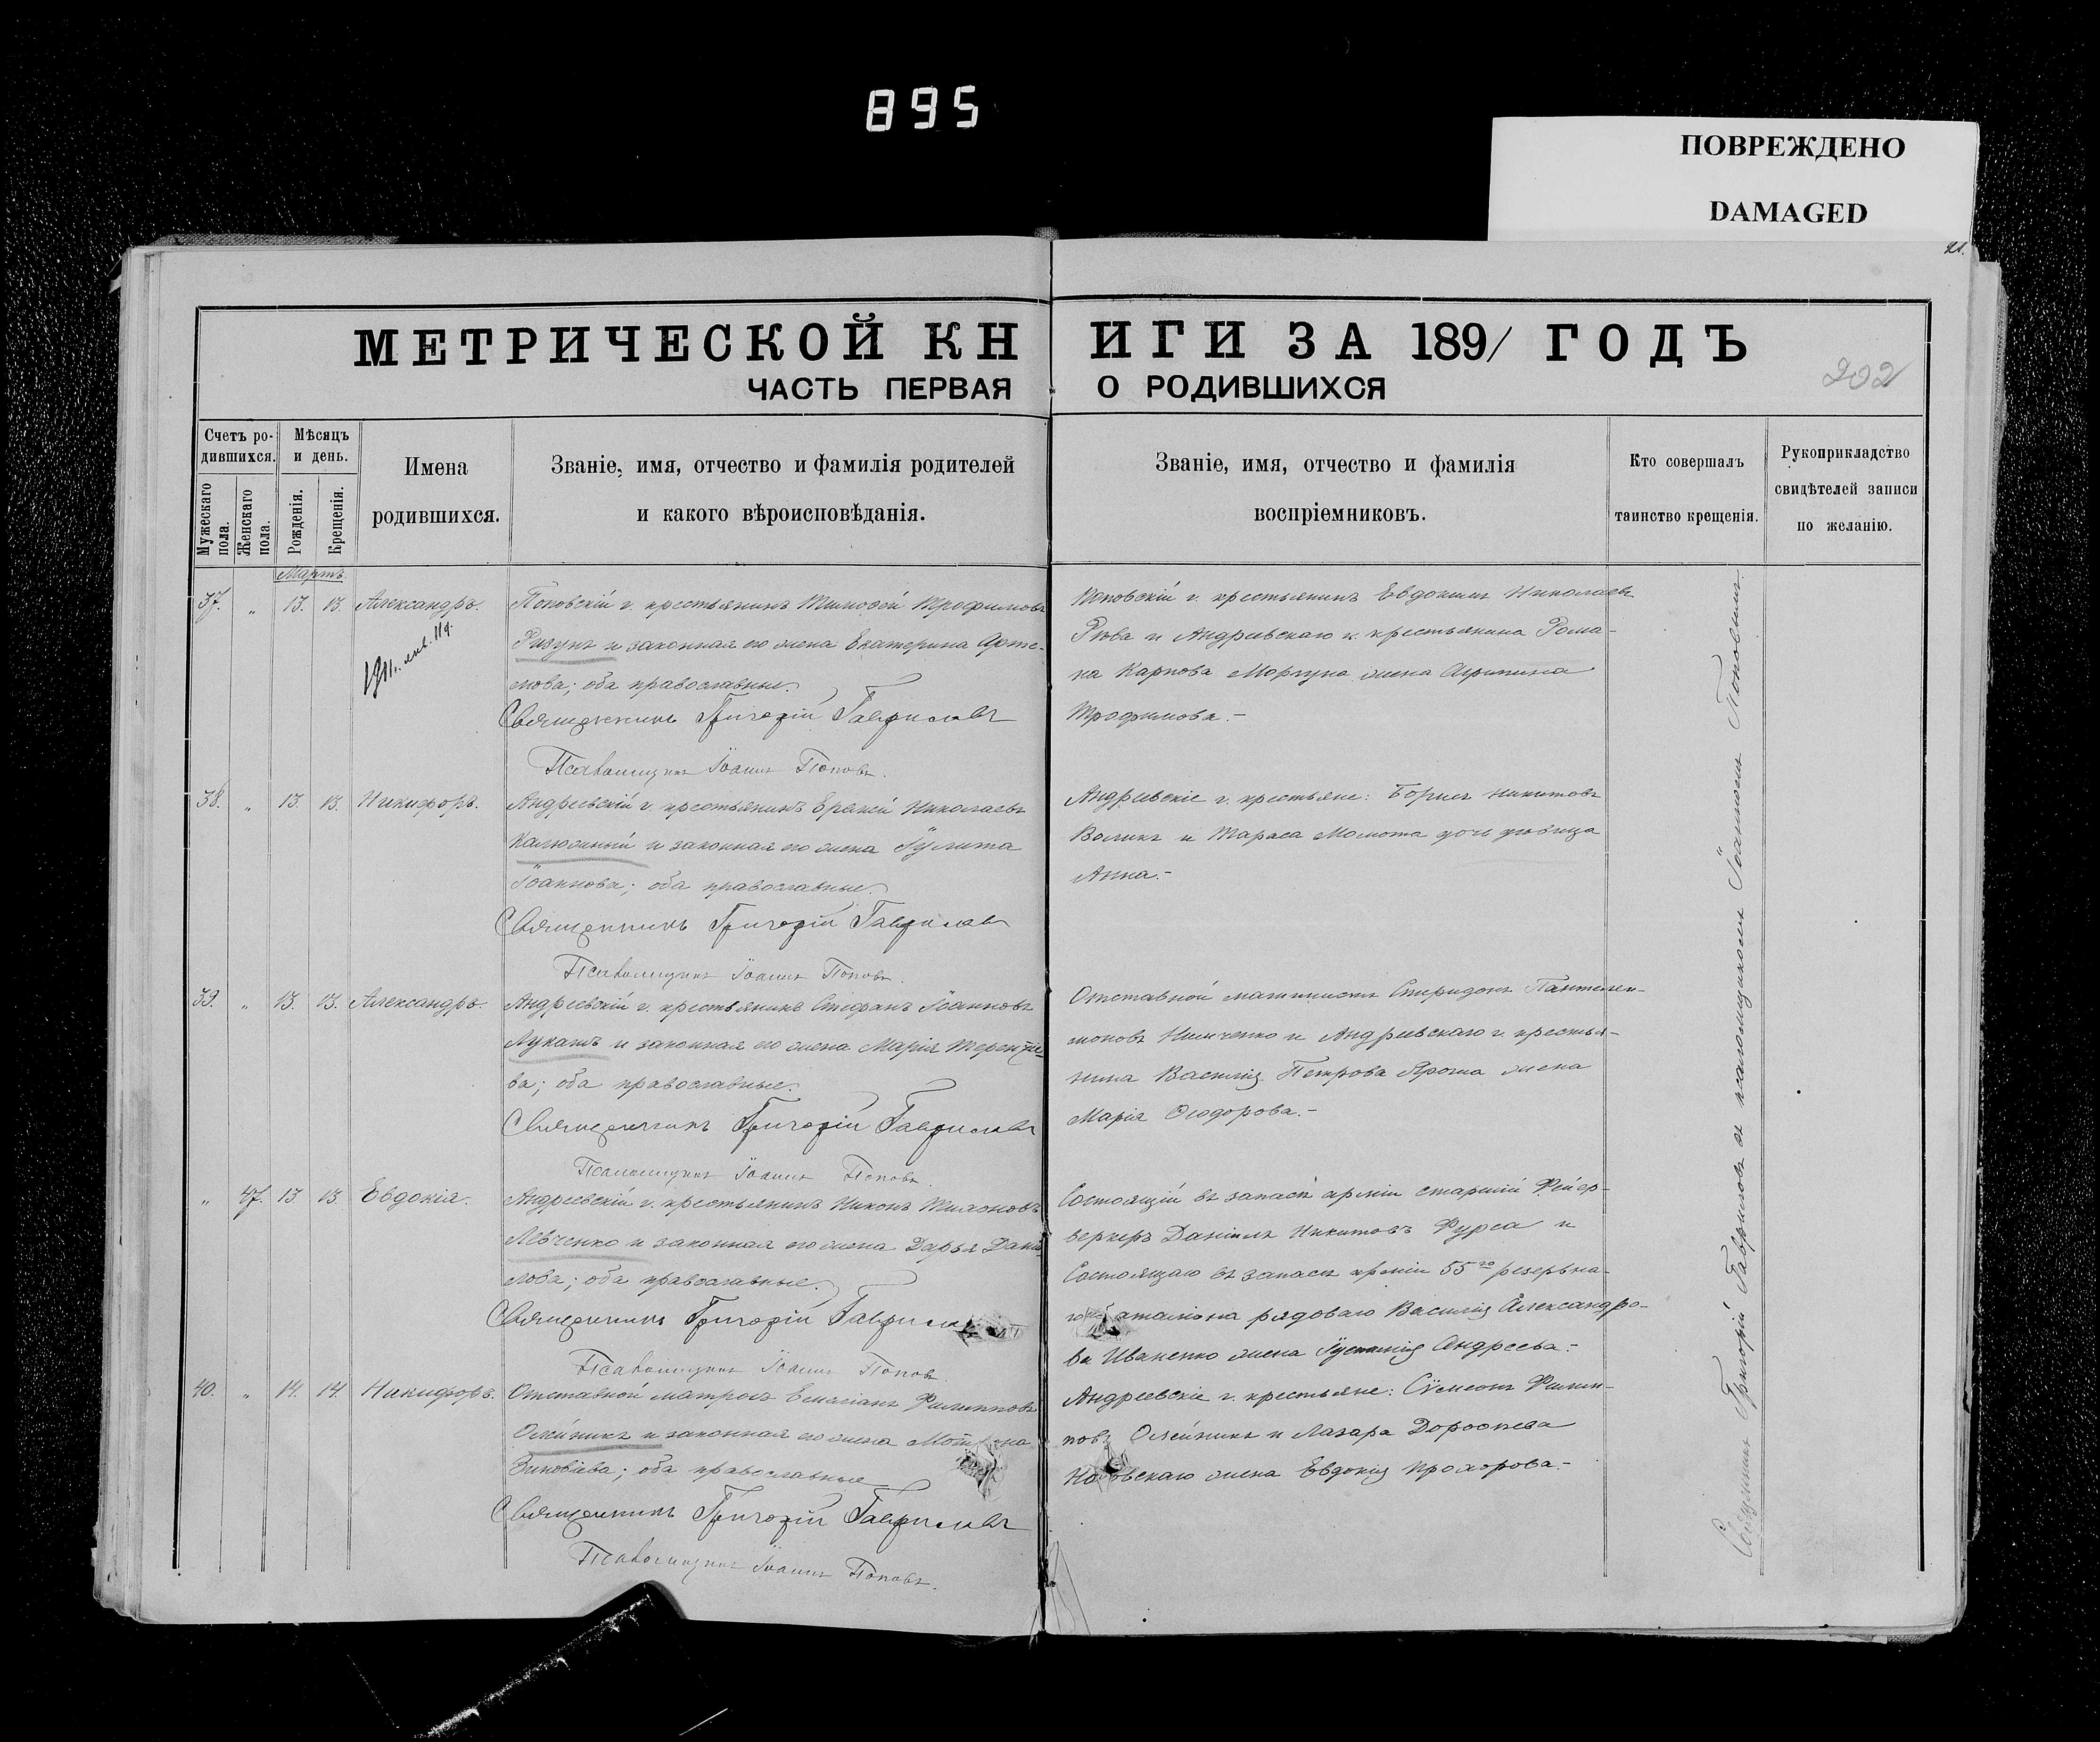 895
ПОВРЕЖДЕНО
DAMAGED
21.
МЕТРИЧЕСКОЙ КНИГИ ЗА 1891 ГОДЪ
202
ЧАСТЬ ПЕРВАЯ О РОДИВШИХСЯ
Счетъ родившихся.
Мужескаго пола.
Женскаго пола.
Мѣсяцъ и день.
Рожденія.
Крещенія.
Имена
родившихся.
Званіе, имя, отчество и фамилія родителей
и какого вѣроисповѣданія.
Званіе, имя, отчество и фамилія
воспріемниковъ.
Кто совершалъ
таинство крещенія.
Рукоприкладство
свидѣтелей записи
по желанію.
Мартъ
37. " 13. 13. Александръ.
1911. янв. 11 д.
Поповскій г. крестьянинъ Тимоѳей Трофимовъ
Ризунъ и законная его жена Екатерина Арте-
мова; оба православные.
Священникъ Григорій Гавриловъ
Псаломщикъ Іоаннъ Поповъ.
Поповскій г. крестьянинъ Евдокимъ Николаевъ
и Андреевскаго г. крестьянина Рома-
на Карпова Моргуна жена Агрипина
Трофимова.-
38. " 13. 13. Никифоръ.
Андреевскій г. крестьянинъ Ераксій Николаевъ
Калюжный и законная его жена Іулита
Іоаннова; оба православные.
Священникъ Григорій Гавриловъ
Псаломщикъ Іоаннъ Поповъ.
Андреевскіе г. крестьяне: Борисъ Никитовъ
Воликъ и Тараса Момота дочь дѣвица
Анна.-
39. " 13. 13. Александръ.
Андреевскій г. крестьянинъ Стефанъ Іоанновъ
Лукашъ и законная его жена Марія Терентіе-
ва; оба православные.
Священникъ Григорій Гавриловъ
Псаломщикъ Іоаннъ Поповъ.
Отставной машинистъ Спиридонъ Пантелеи-
моновъ Нимченко и Андреевскаго г. крестья-
нина Василія Петрова Яроша жена
Марія Ѳеодорова.-
" 47. 13 13 Евдокія.
Андреевскій г. крестьянинъ Никонъ Тихоновъ
Левченко и законная его жена Дарья Дани-
лова; оба православные.
Священникъ Григорій Гаврилов
Псаломщикъ Іоаннъ Поповъ.
Состоящій въ запасѣ арміи старшій Фейер-
веркеръ Даніилъ Никитовъ Фурса и
Состоящаго въ запасѣ арміи 55го резервна-
го баталіона рядоваго Василія Александро-
ва Иваненко жена Андреева.-
40. " 14. 14 Никифоръ.
Отставной матросъ Емеліанъ Филипповъ
Олейникъ и законная его жена Мотрона
Зиновіева; оба православные
Священникъ Григорій Гавриловъ
Псаломщикъ Іоаннъ Поповъ.
Андреевскіе г. крестьяне: Сѵмеонъ Филип-
повъ Олейникъ и Лазара Дороѳеева
жена Евдокія Прохорова.-
Священникъ Григорій Гавриловъ съ псаломщикомъ Іоанномъ Поповымъ